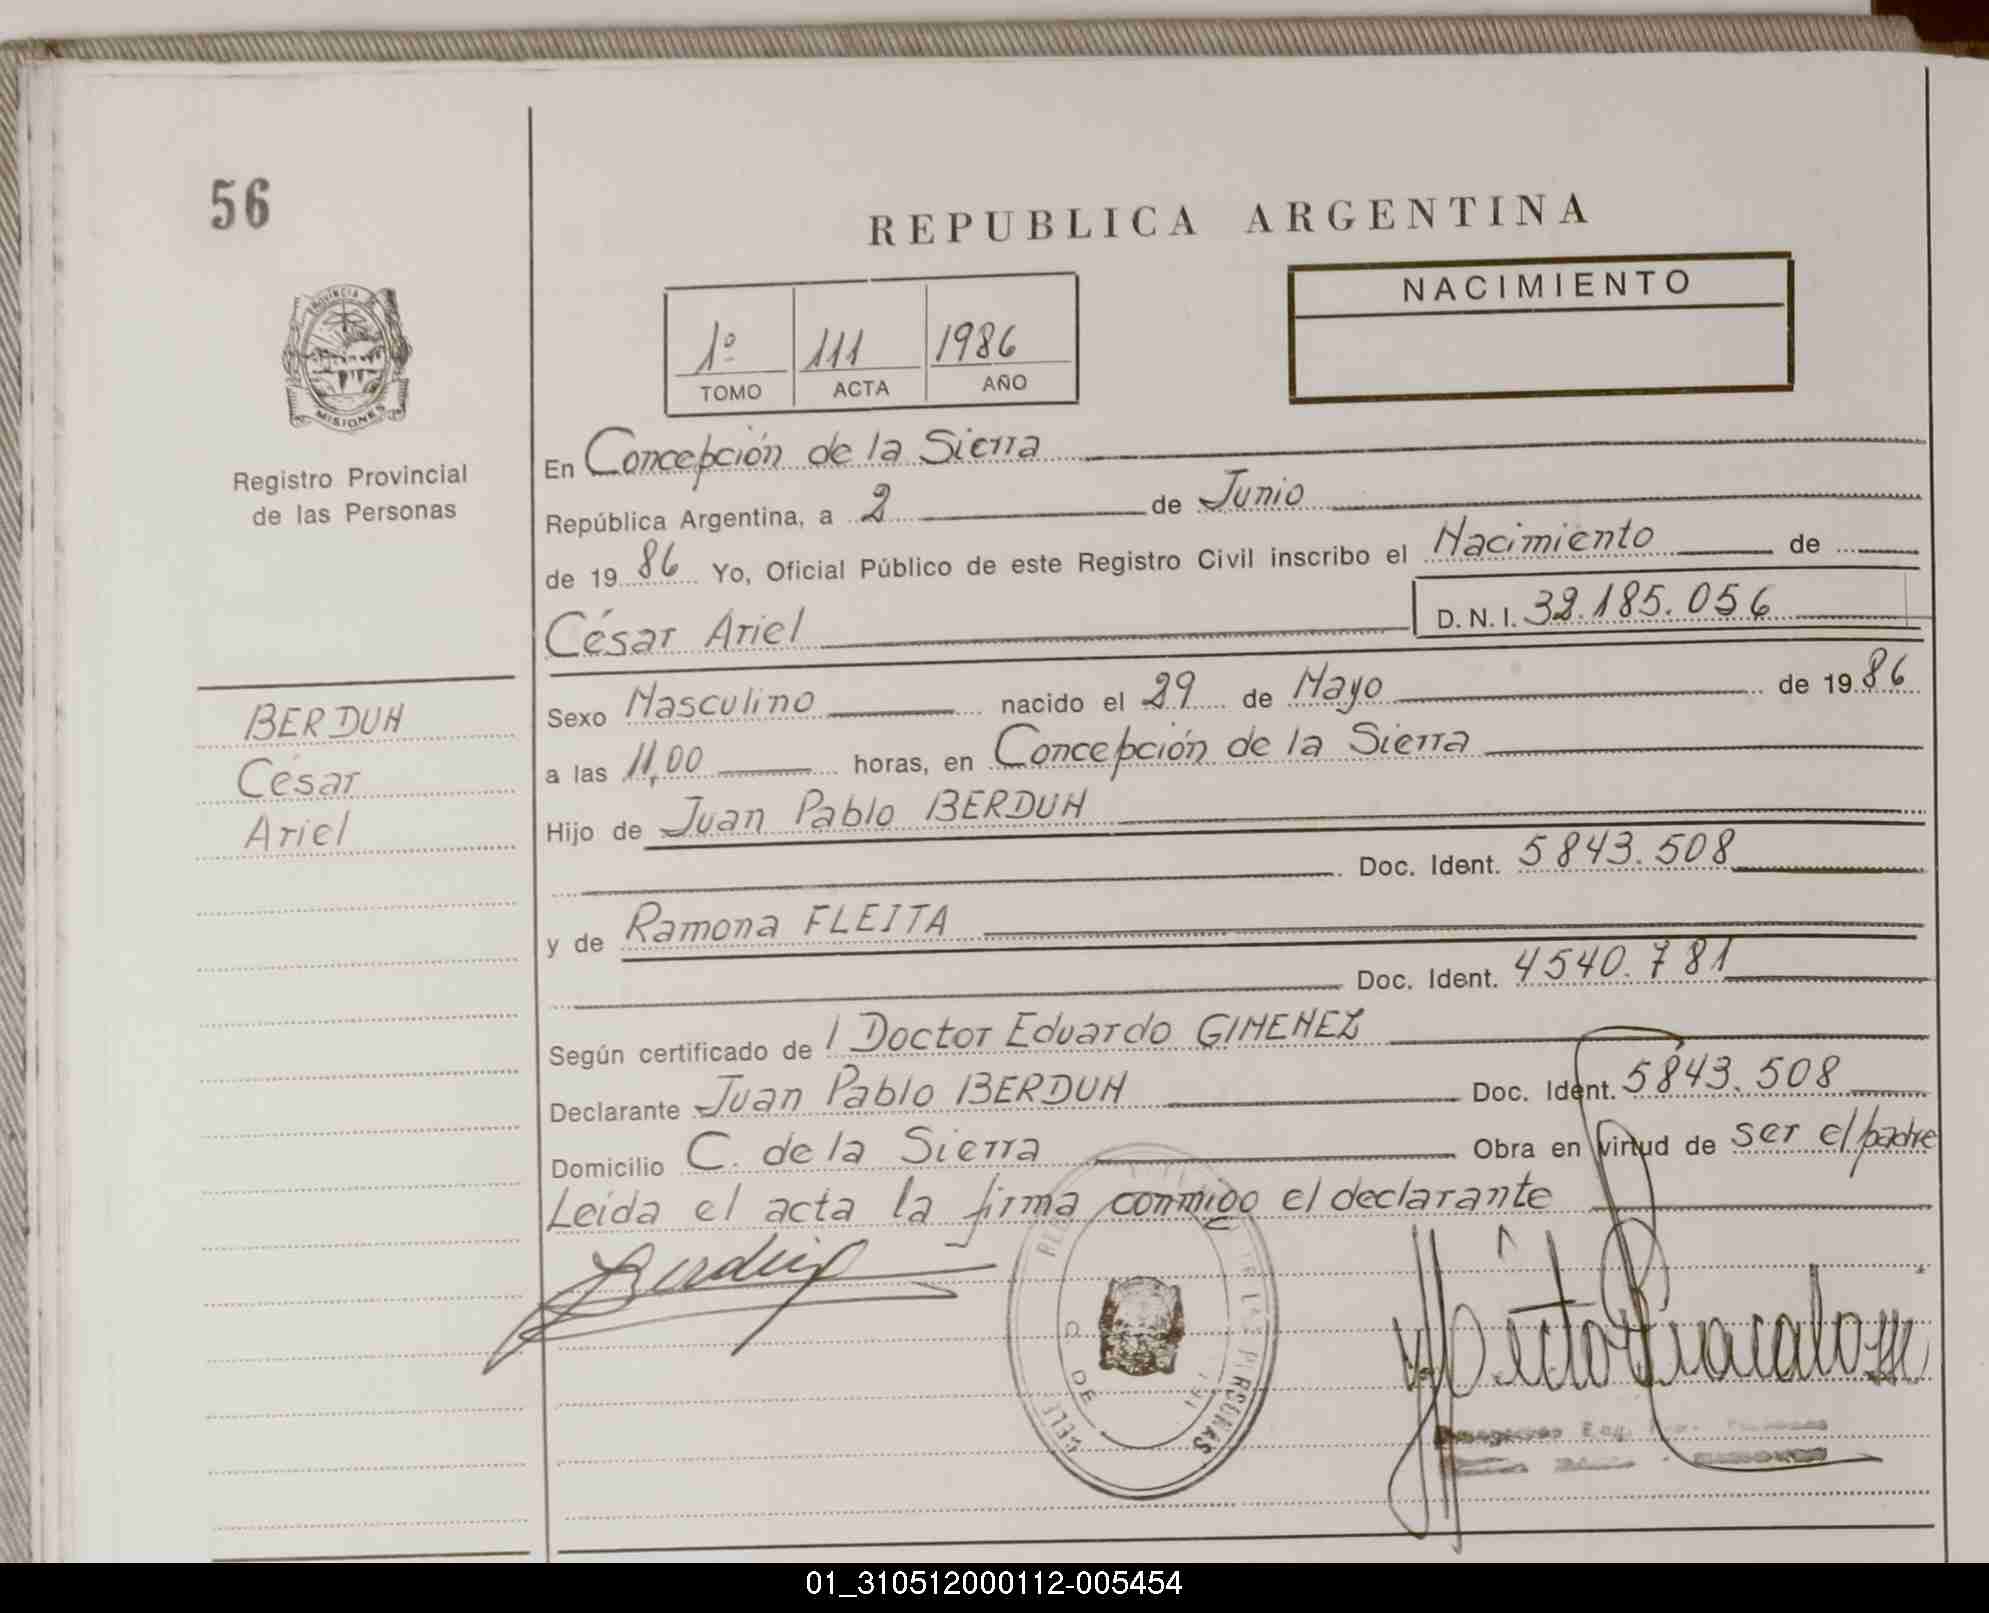 56
REPUBLICA ARGENTINA
NACIMIENTO
1º 111 1986
TOMO ACTA AÑO
PROVINCIA DE
MISIONES
Registro Provincial
de las Personas
En Concepción de la Sierra
República Argentina, a 2 de Junio
de 1986 Yo, Oficial Público de este Registro Civil inscribo el Nacimiento de
César Ariel D.N.I. 32.185.056
BERDUN
César
Ariel
Sexo Masculino nacido el 29 de Mayo de 1986
a las 11,00 horas, en Concepción de la Sierra
Hijo de Juan Pablo BERDUN
Doc. Ident. 5843.508
y de Ramona FLEITA
Doc. Ident. 4540.781
Según certificado de l Doctor Eduardo GIMENEZ
Declarante Juan Pablo BERDUN Doc. Ident. 5843.508
Domicilio C. de la Sierra Obra en virtud de ser el padre
Leída el acta la firma conmigo el declarante
DE LAS PERSONAS
01_310512000112-005454